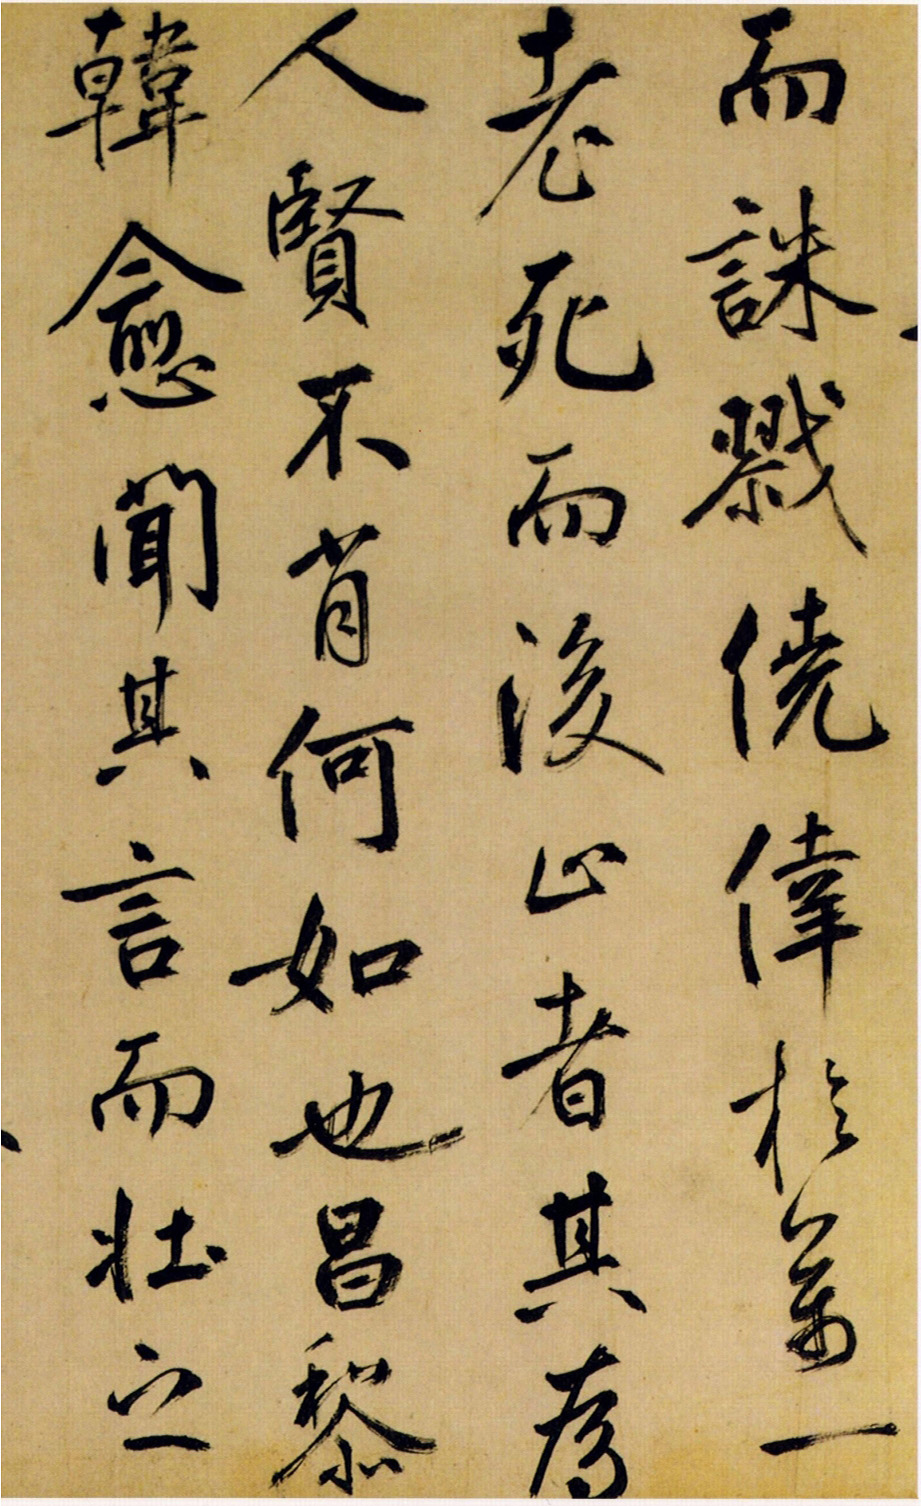 而誅戮僥倖於萬一
老死而後止者其為
人賢不肖何如也昌黎
韓愈聞其言而壯之